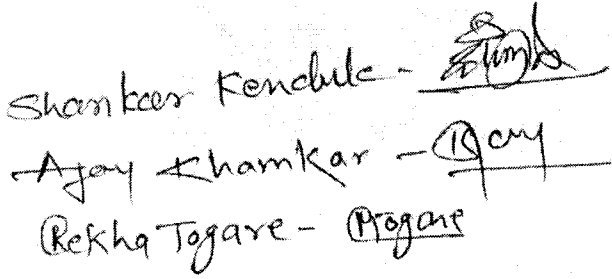 Shankar Kendule -
Ajay Khamkar - Ajay
Rekha Togare - RTogare